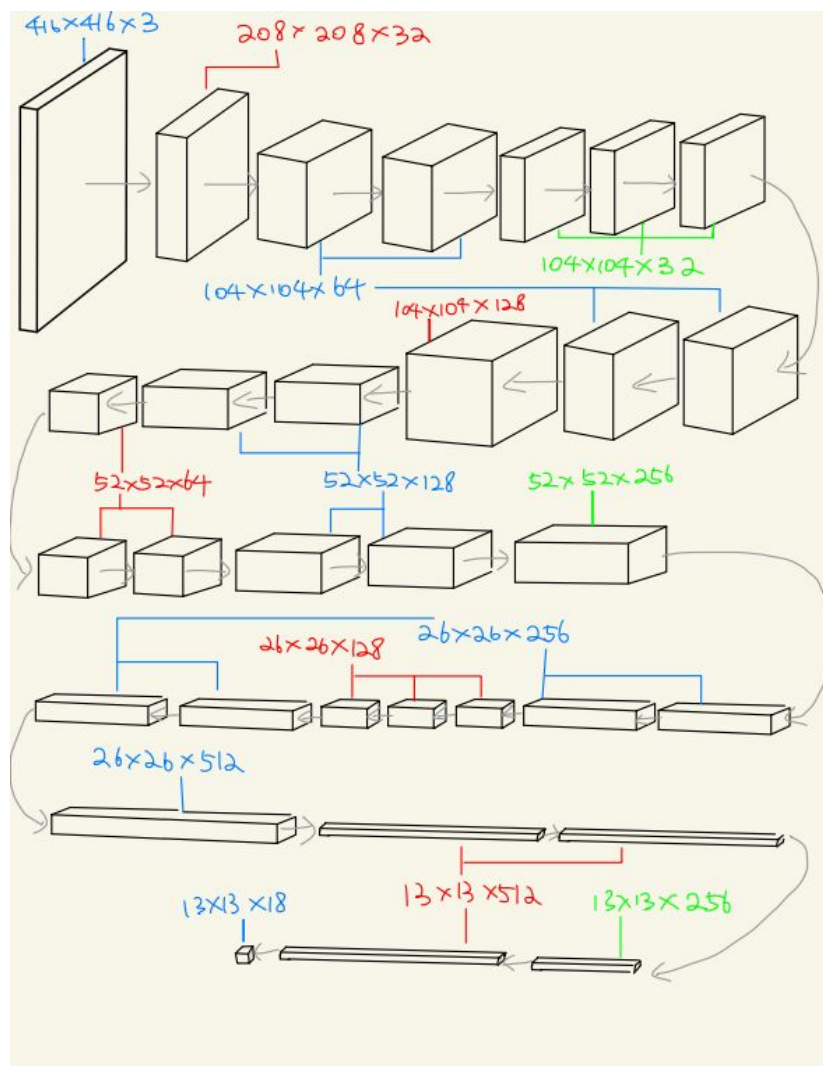 416×416×3
208×208×32
104×104×32
104×104×64
104×104×128
52×52×64
52×52×128
52×52×256
26×26×256
26×26×128
26×26×512
13×13×18
13×13×512
13×13×256